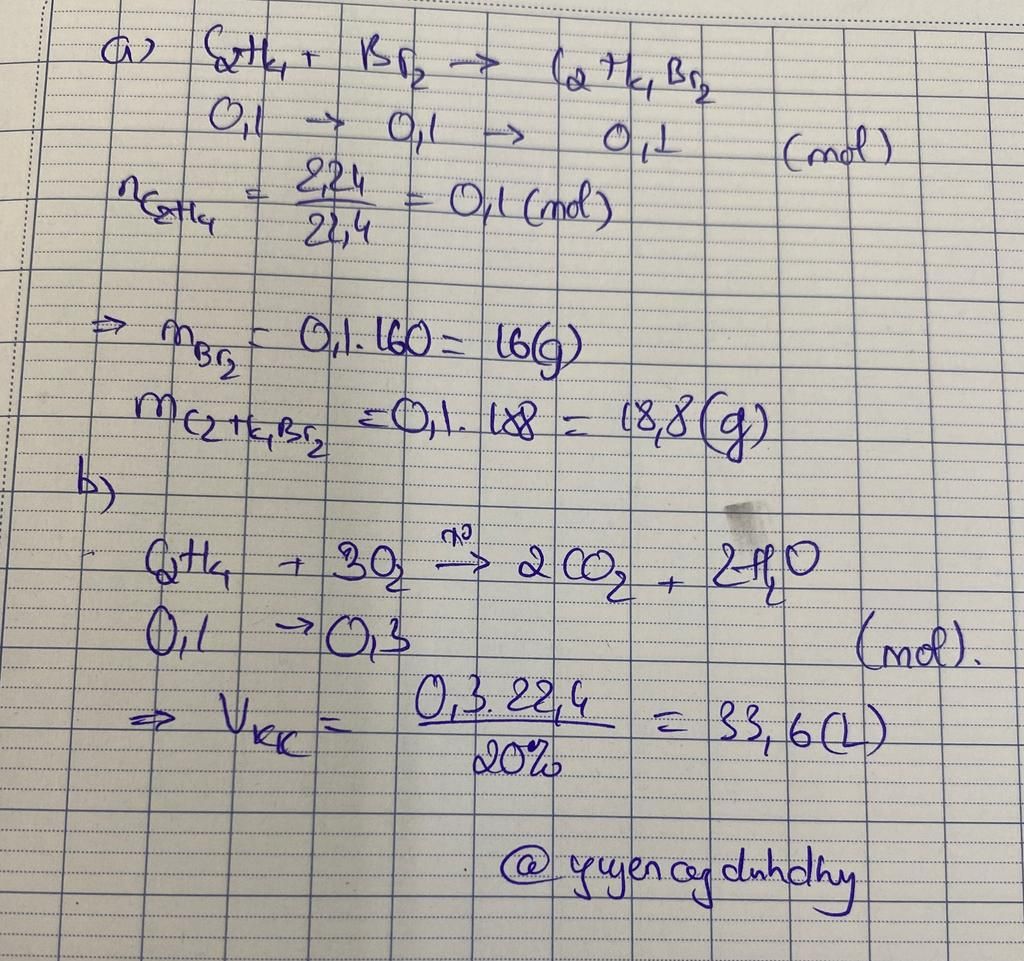 a) C2H4 + Br2 → C2H4Br2
0,1 → 0,1 → 0,1 (mol)
nC2H4 = 2,24/22,4 = 0,1 (mol)
⇒ mBr2 = 0,1.160 = 16(g)
mC2H4Br2 = 0,1.188 = 18,8(g)
b)
C2H4 + 3O2 → 2CO2 + 2H2O
0,1 → 0,3 (mol).
⇒ VKK = 0,3.22,4/20% = 33,6(L)